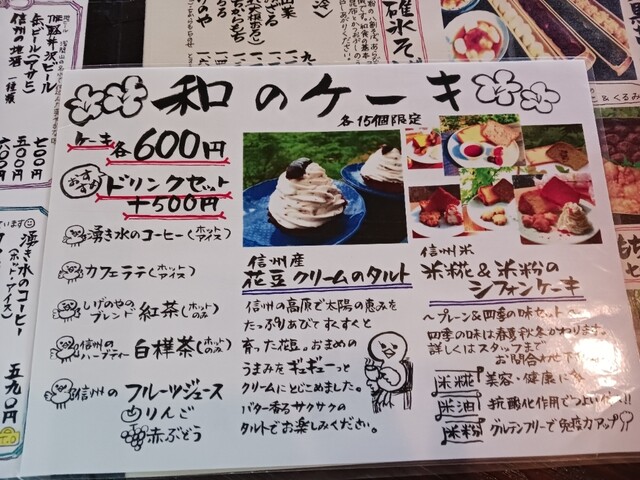 和のケーキ
各15個限定
ケーキ各600円
おすすめ
ドリンクセット
+500円
湧き水のコーヒー(ホット アイス)
カフェラテ(ホット アイス)
しげのやの
ブレンド 紅茶(ホットのみ)
信州の
ハーブティー 白樺茶(ホットのみ)
信州の フルーツジュース
りんご
赤ぶどう
信州産
花豆クリームのタルト
信州の高原で太陽の恵みを
たっぷりあびてすくすくと
育った花豆。おまめの
うまみをギューギューっと
クリームにとじこめました。
バター香るサクサクの
タルトでお楽しみください。
信州米
米糀&米粉の
シフォンケーキ
~プレーン&四季の味セット~
四季の味は春夏秋冬かわります。
詳しくはスタッフまで
お問合わせ下
米糀 美容・健康に
米油 抗酸化作用でつよい
米粉 グルテンフリーで免疫力アップ
軽井沢ビール
缶ビール(アサヒ)
信州の地酒 一種類
七〇〇円
五〇〇円
湧き水のコーヒー
(ホット・アイス)
五九〇円
碓氷そば